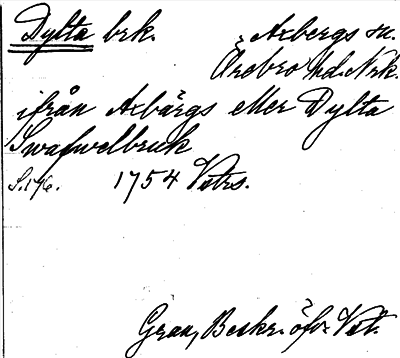 Dylta brk. Axbergs sn.
Örebro hd. Nrk.
ifrån Axbärgs eller Dylta
Swafwelbruk
S. 176. 1754 Vstrs.
Grau, Beskr. öfv. Vstl.